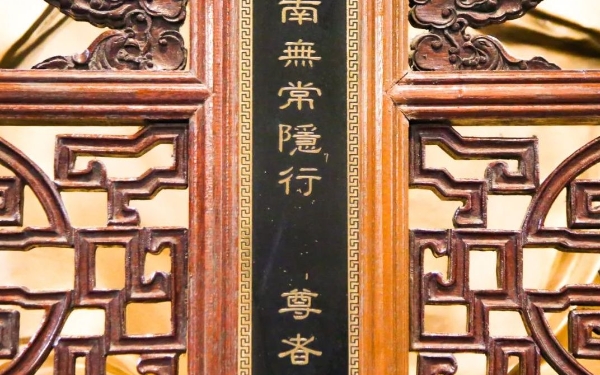 南無常隱行 尊者